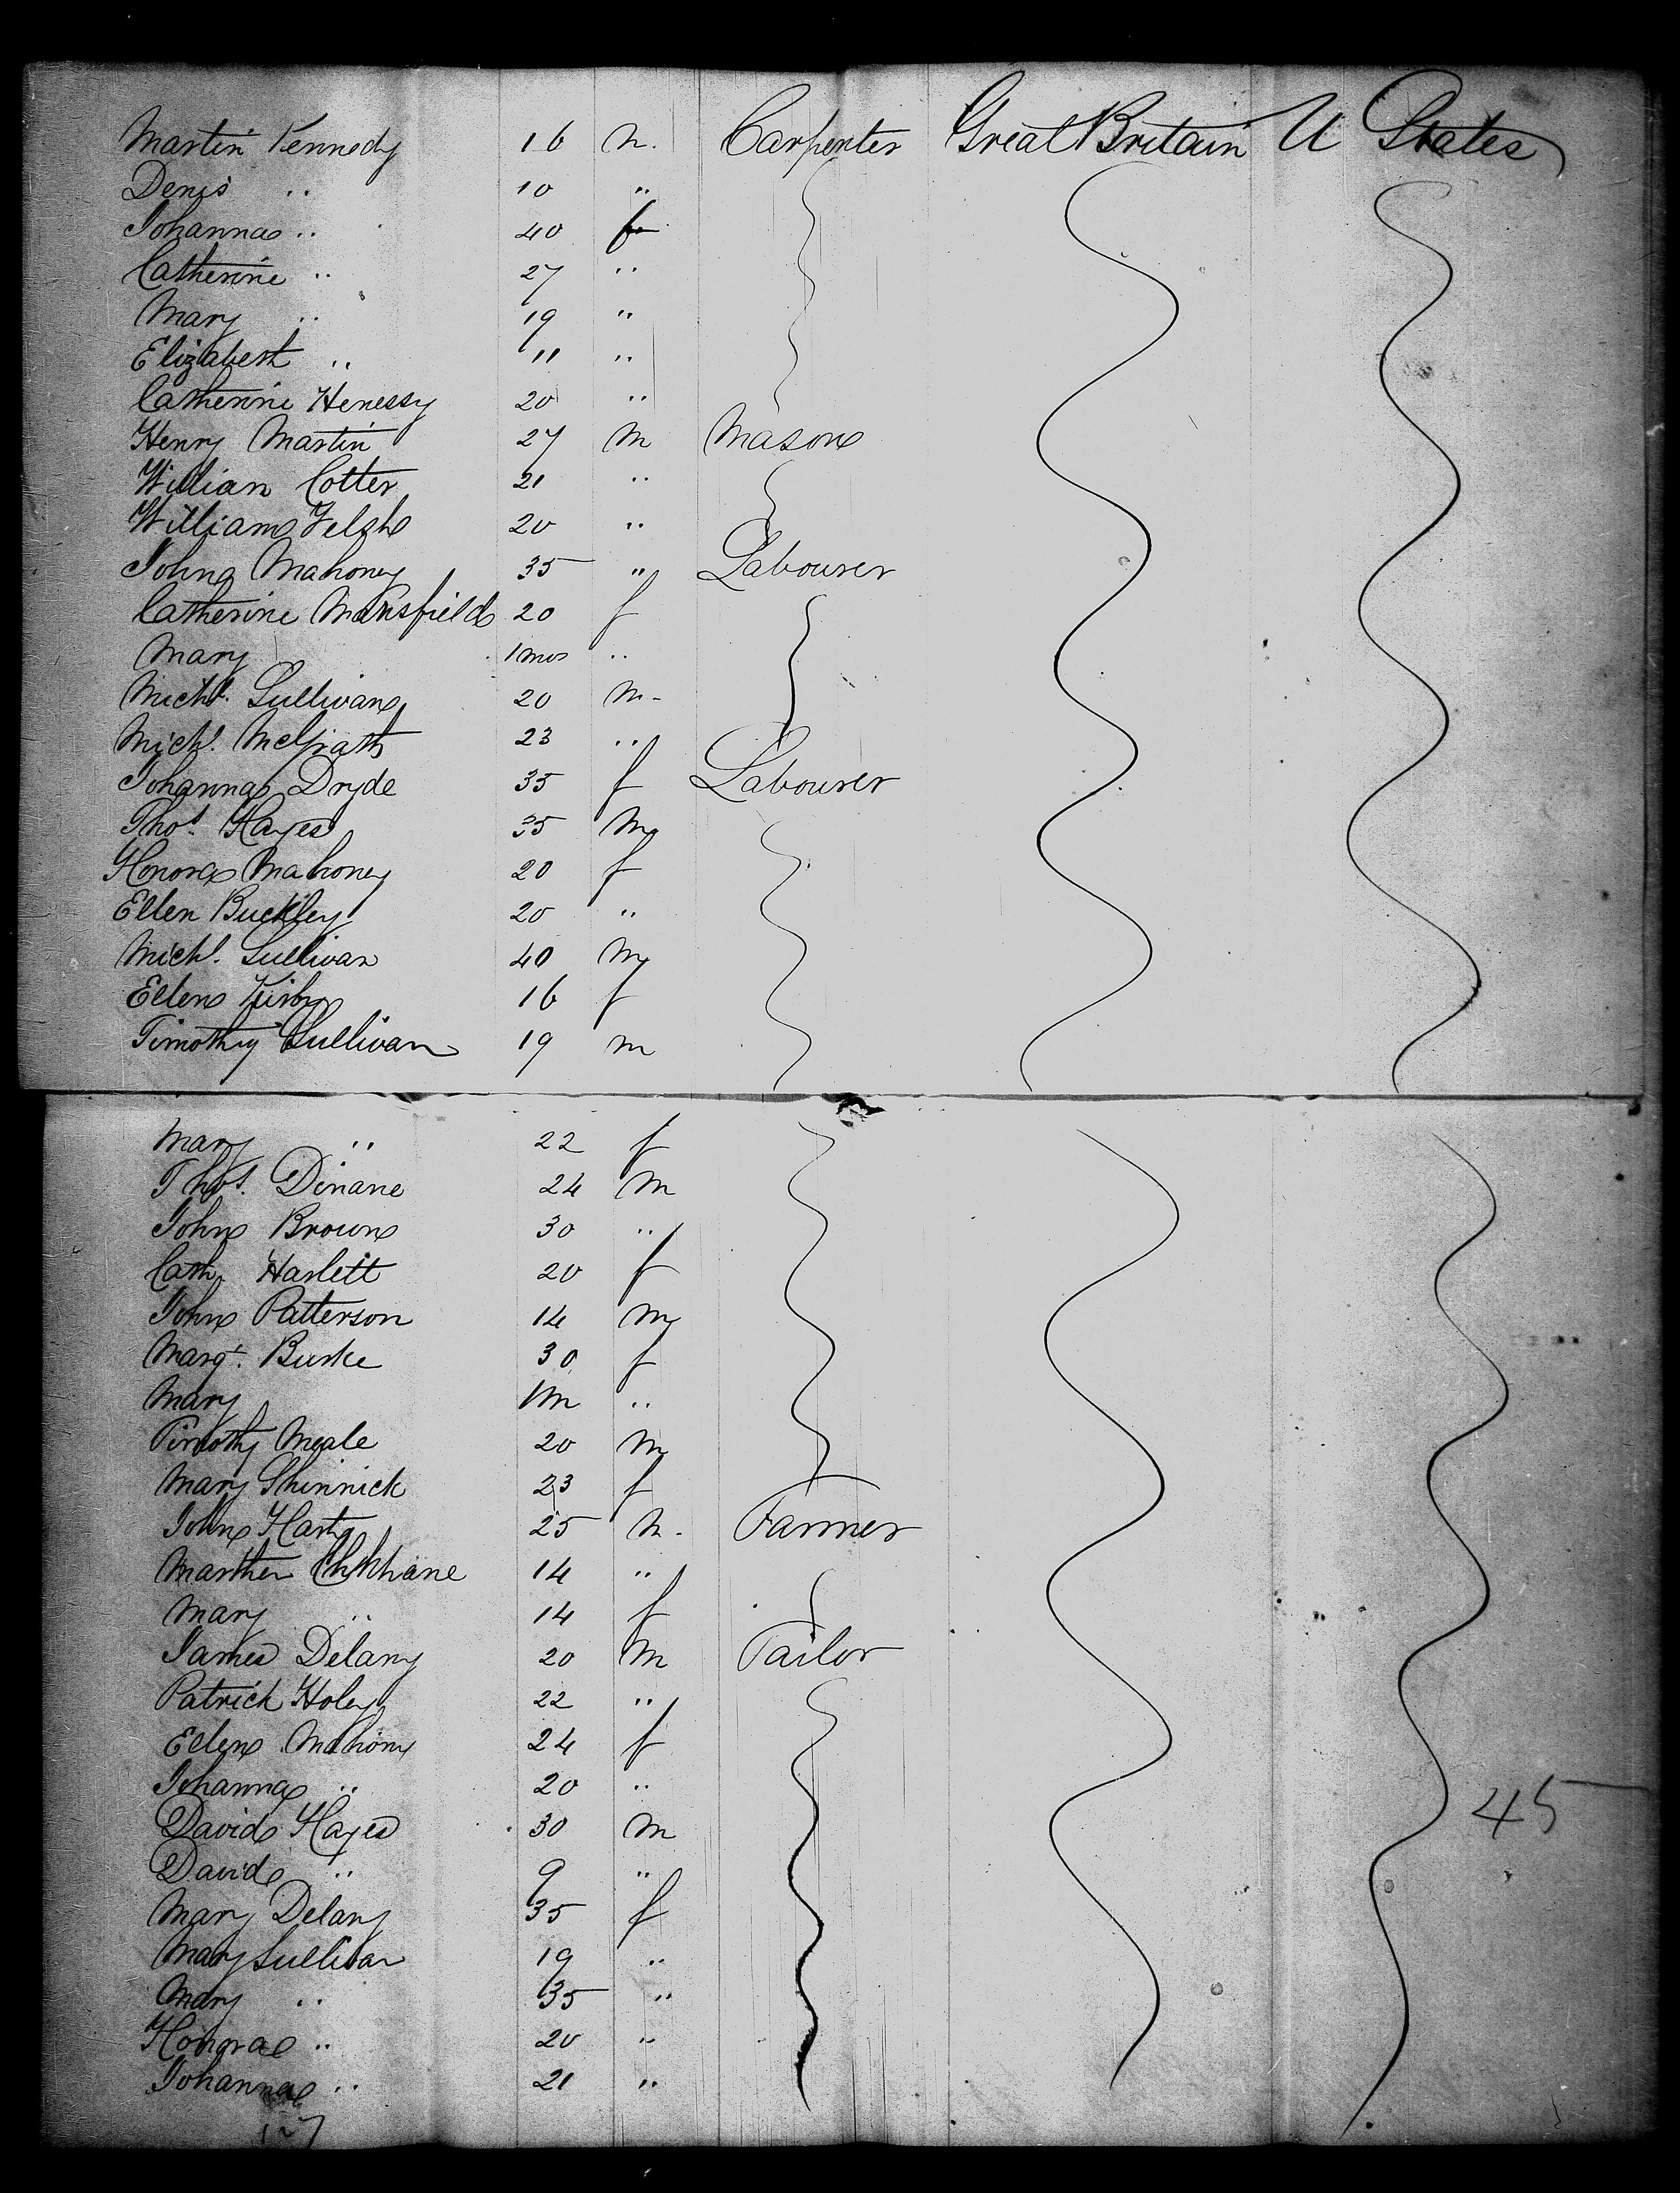 Martin Kennedy 16 m. Carpenter Great Britain U States
Denis " 10 "
Johanna " 40 f
Catherine " 27 "
Mary " 19 "
Elizabeth " 11 "
Catherine Henessy 20 "
Henry Martin 27 m Mason
William Cotter 21 "
William Welsh 20 "
John Mahoney 35 " Labourer
Catherine Mansfield 20 f
Mary 1 mos "
Michl. Sullivan 20 m
Michl. McGrath 23 "
Johanna Dryde 35 f Labourer
Thos. Hayes 35 m
Honora Mahoney 20 f
Ellen Buckley 20 "
Michl. Sullivan 40 m
Ellen Kirby 16 f
Timothy Sullivan 19 m
Mary " 22 f
Thos. Dinane 24 m
John Brown 30 "
Cath. Haslett 20 f
John Patterson 14 m
Margt. Burke 30 f
Mary 1m "
Timothy Meale 20 m
Mary Shinnick 23 f
John Hart 25 m. Farmer
Marther 14 "
Mary " 14 f
James Delany 20 m Tailor
Patrick Holey 22 "
Ellen Mahony 24 f
Johanna " 20 "
David Hayes 30 m
David " 9 "
Mary Delany 35 f
Mary Sullivan 19 "
Mary " 35 "
Honora " 20 "
Johanna " 21 "
45